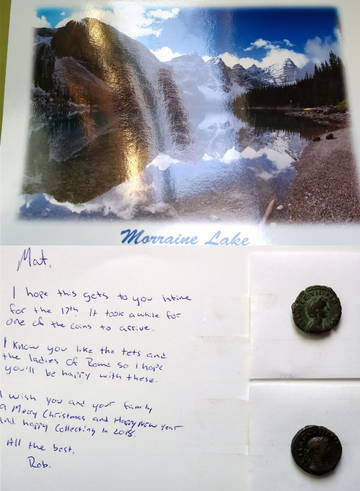 Morraine Lake
Mat,
I hope this gets to you intime
for the 17th. It took awhile for
one of the coins to arrive.
I know you like the tets and
the ladies of Rome so I hope
you'll be happy with these.
I wish you and your family
a Merry Christmas and Happy New year
and happy Collecting in 2018.
All the best.
Rob.